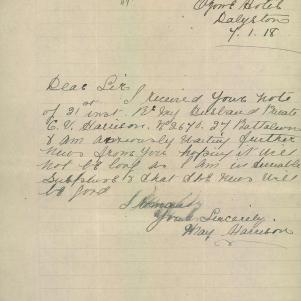 Hotel
Dalyston
7.1.18
Dear Sir
I received your note
of 21st inst. Re My Husband Private
C. V. Harrison. No 2670. 27 Battalion
I am anxiously waiting further
news from you hoping it will
not be long as I am in terrible
Suspense & that the news will
be good
I Remain
Yours Sincerely.
May Harrison